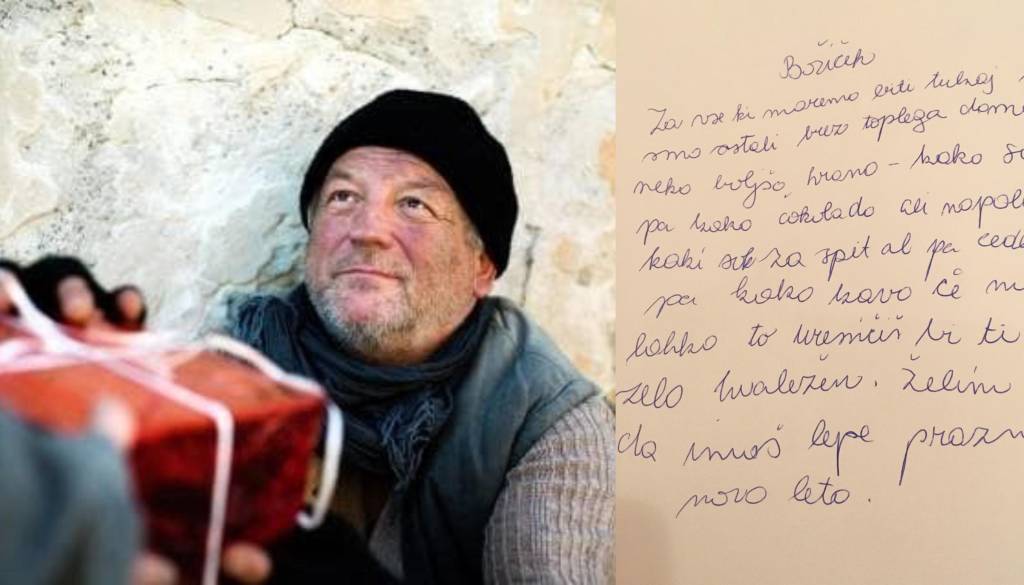 Božiček
Za vse ki moremo biti tukaj
smo ostali brez toplega
neko boljšo hrano - kako
pa kako čokolado ali
kaki sok za spit al pa
pa kako kavo če
lahko to uresničiš bi ti
zelo hvaležen. Želim
da imaš lepe
novo leto.